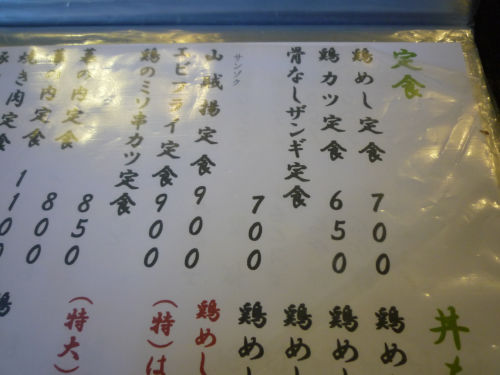 定食
鶏めし定食 700
鶏カツ定食 650
骨なしザンギ定食
700
サンゾク
山賊揚定食 900
エビフライ定食
鶏のミソ串カツ定食 900
の肉定食 850
の内定食 800
焼き肉定食 1100
丼
鶏め
鶏め
鶏め
鶏め
鶏めし
(特)は
(特大)
鶏